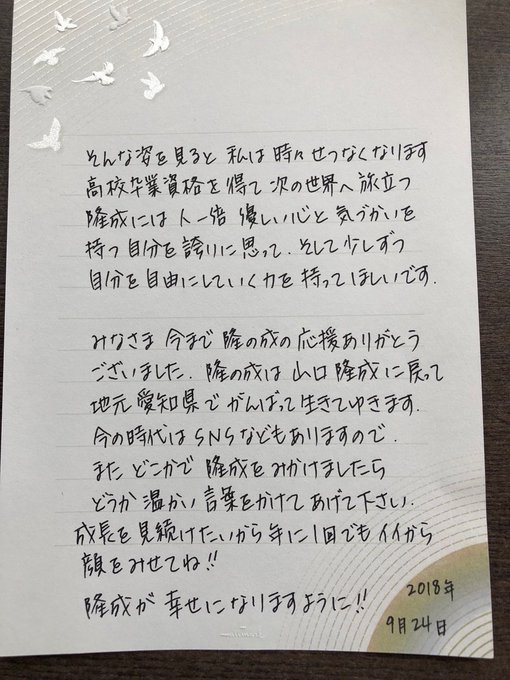 そんな姿を見ると 私は時々せつなくなります
高校卒業資格を得て 次の世界へ旅立つ
隆成には 人一倍 優しい心と 気づかいを
持つ自分を誇りに思って、そして少しずつ
自分を自由にしていく力を持ってほしいです.
みなさま 今まで 隆の成の応援ありがとう
ございました. 隆の成は 山口隆成に戻って
地元 愛知県で がんばって生きてゆきます.
今の時代はSNSなどもありますので.
また どこかで 隆成をみかけましたら
どうか 温かい 言葉をかけて あげて下さい.
成長を見続けたいから 年に1回でもイイから
顔をみせてね!!
隆成が 幸せになりますように!!
2018年
9月24日